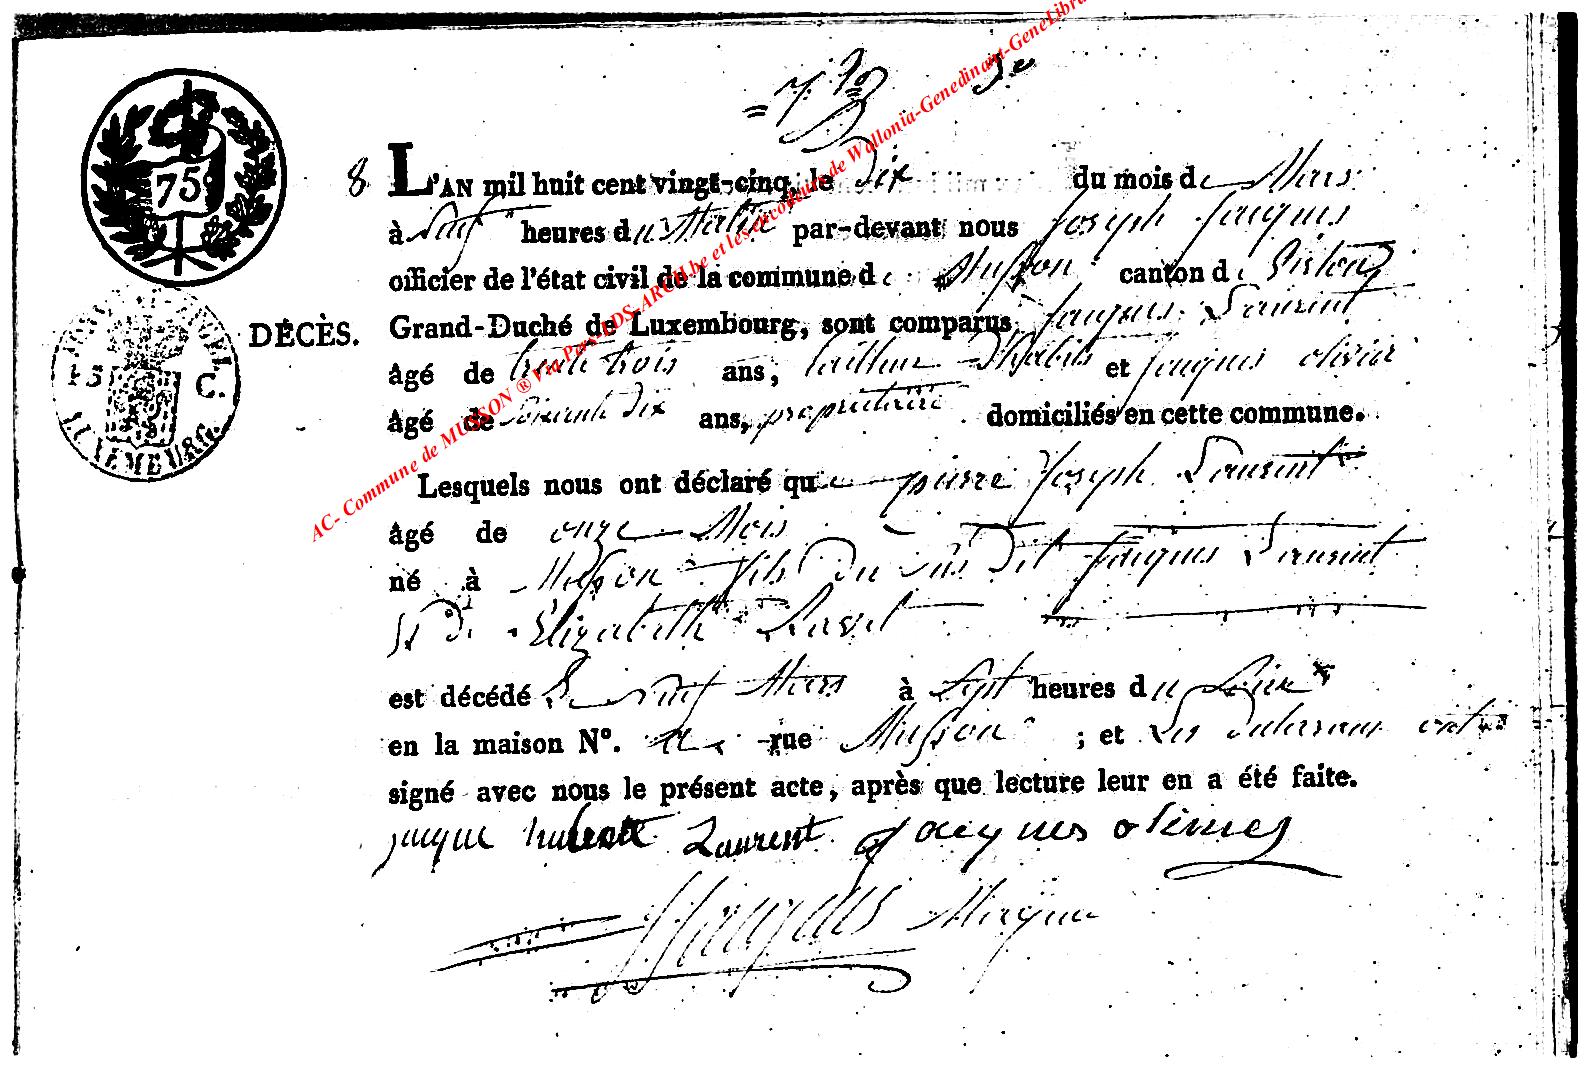 75
8 L'AN mil huit cent vingt-cinq, le Dix du mois de Mars
à neuf heures du Matin par-devant nous Joseph Jacques
officier de l'état civil de la commune de Musson canton de Virton
DÉCÈS. Grand-Duché de Luxembourg, sont comparus Jacques Laurent
âgé de trente trois ans, tailleur D'habits et Jacques olivier
âgé de soixante dix ans, proprietaire domiciliés en cette commune.
Lesquels nous ont déclaré que pierre Joseph Laurent
âgé de onze Mois
né à Musson fils du sus Dit Jacques Laurent
et de Elizabeth
est décédé le neuf Mars à sept heures du soir
en la maison N°. rue Musson ; et les Declarans ont
signé avec nous le présent acte, après que lecture leur en a été faite.
jacque Laurent Jacques
JJacques
C.
LUXEMBURG.
AC- Commune de MUSSON ® Via Pers-LDS-ARCH.be et les encodeurs de Wallonia-Genedinant-GeneLibra